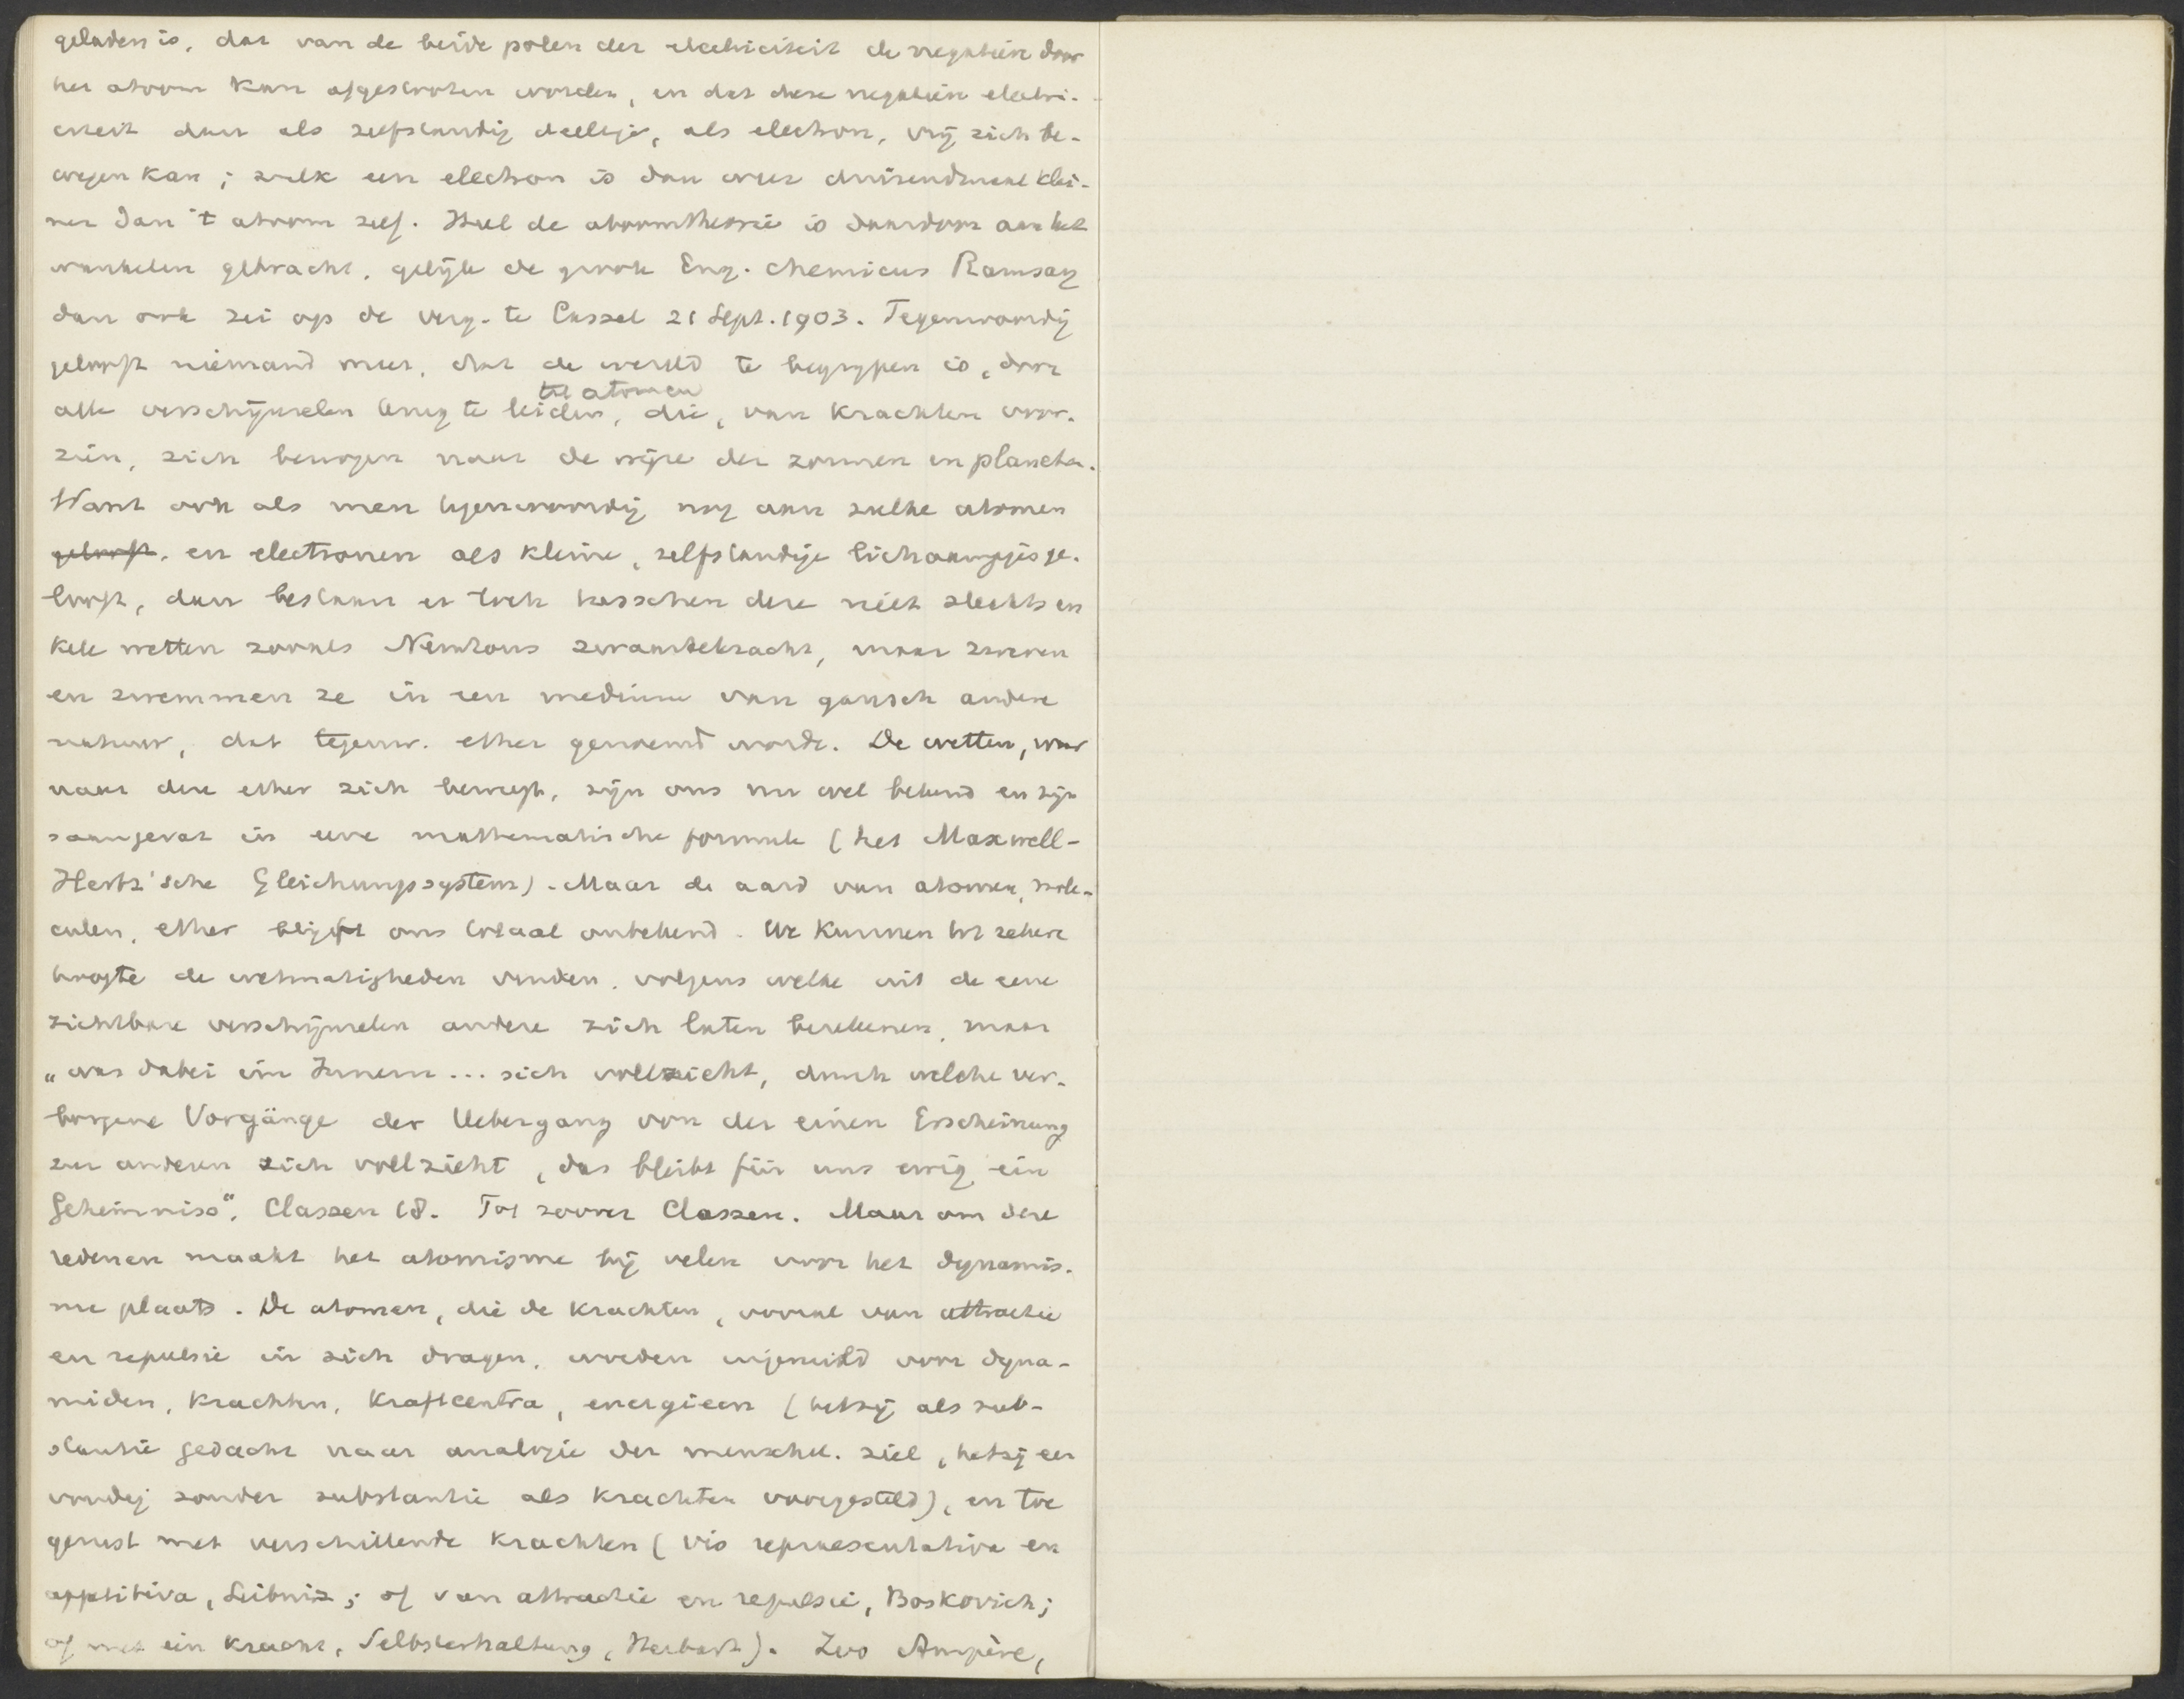 geladen is, dat van de beide polen der electriciteit de negatieve door
het atoom kan afgestooten worden, en dat deze negatieve electri-
citeit dan als zelfstandig deeltje, als electron, vrij zich be-
wegen kan; zulk een electron is dan weer duizendmaal klei-
ner dan 't atoom zelf. Heel de atoomtheorie is daardoor aan het
wankelen gebracht, gelijk de groote Eng. chemicus Ramsay
dan ook zei op de verg. te Cassel 21 Sept. 1903. Tegenwoordig
gelooft niemand meer, dat de wereld te begrijpen is, door
tot atomen
alle verschijnselen terug te leiden, die, van krachten voor-
zien, zich bewegen naar de wijze der zonnen en planeten.
Want ook als men tegenwoordig nog aan zulke atomen
gelooft, en electronen als kleine, zelfstandige lichaampjes ge-
looft, dan bestaan er toch tusschen deze niet slechts en
kele wetten zooals Newtons zwaartekracht, maar zweven
en zwemmen ze in een medium van gansch andere
natuur, dat tegenw. ether genoemd wordt. De wetten, waar
naar deze ether zich beweegt, zijn ons nu wel bekend en zijn
saamgevat in eene mathematische formule (het Maxwell-
Hertz'sche Gleichungssystem). Maar de aard van atomen, mole-
culen, ether blijft ons totaal onbekend. We kunnen tot zekere
hoogte de wetmatigheden vinden, volgens welke uit de eene
zichtbare verschijnselen andere zich laten berekenen, maar
„was dabei im Innern ... sich vollzieht, durch welche ver-
borgene Vorgänge der Uebergang von der einen Erscheinung
zur anderen sich vollzieht, das bleibt für uns ewig ein
Geheimniss". Classen 18. Tot zoover Classen. Maar om deze
redenen maakt het atomisme bij velen voor het dynamis-
me plaats. De atomen, die de krachten, vooral van attractie
en repulsie in zich dragen, worden ingeruild voor dyna-
miden, krachten, Kraftcentra, energieen (hetzij als sub-
stantie gedacht naar analogie der menschel. ziel, hetzij een
voudig zonder substantie als krachten voorgesteld), en toe
gerust met verschillende krachten (vis repraesentativa en
appetitiva, Leibniz; of van attractie en repulsie, Boskovich;
of met één kracht, Selbsterhaltung, Herbart). Zoo Ampère,